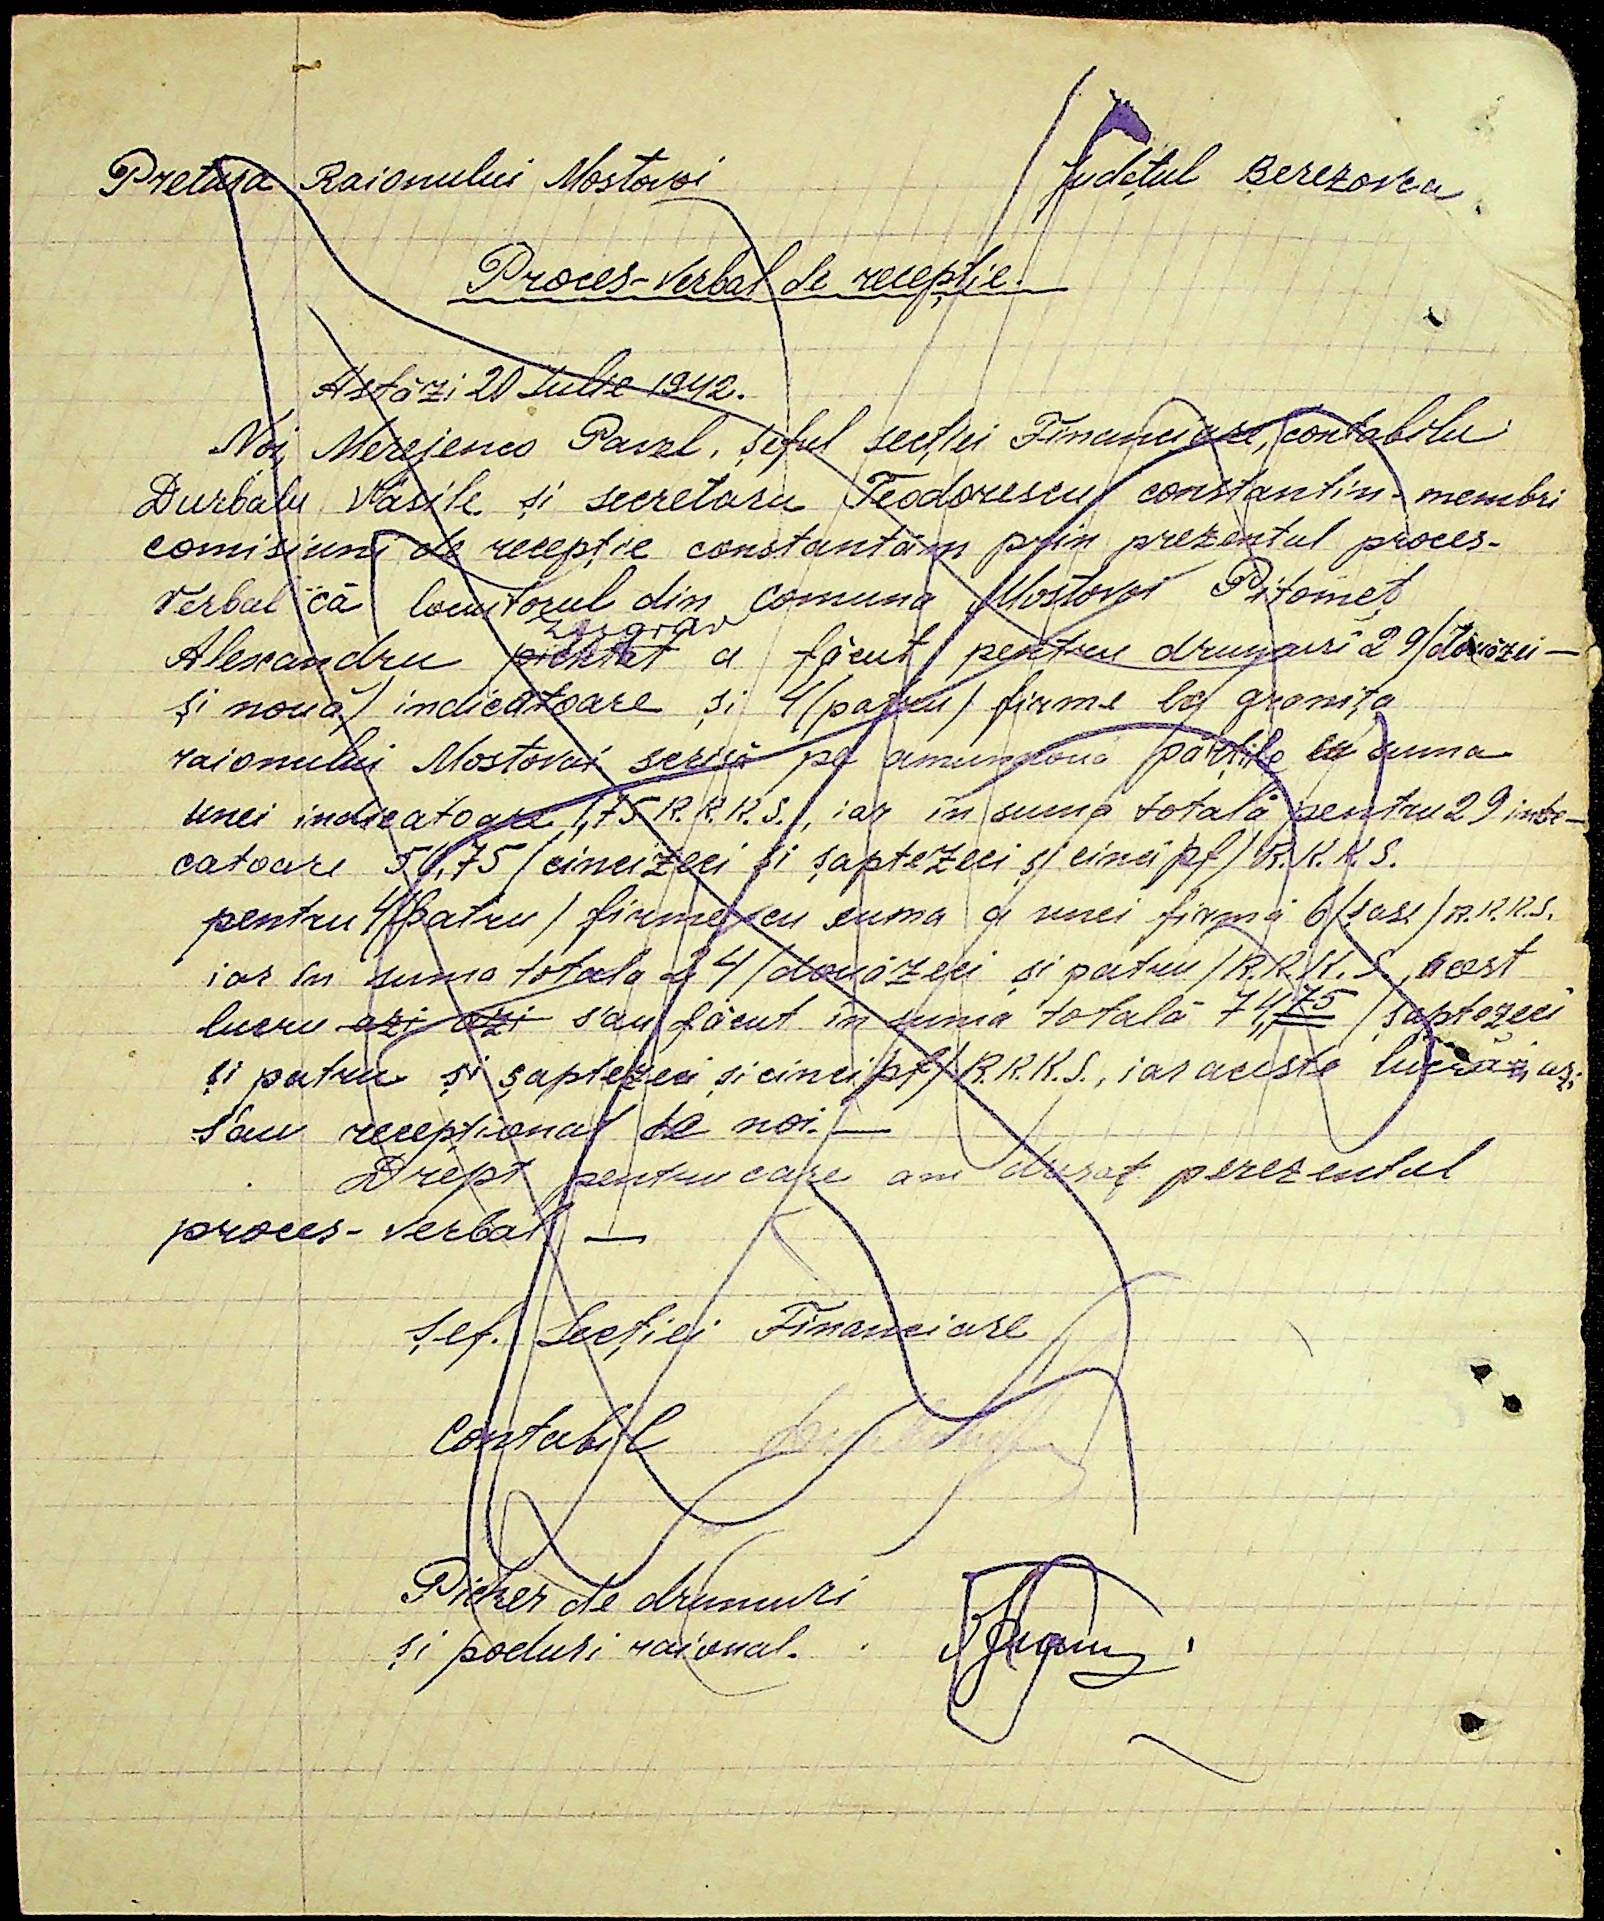 Pretura Raionului Mostovoi Județul Berezovca
Proces-Verbal de recepție.
Astăzi 20 Iulie 1942.
Noi, Merejenco Pavel, șeful secției Financiare, contabilu
Durbalu Vasile și secretaru Teodorescu constantin-membri
comisiuni de recepție constantăm prin prezentul proces-
Verbal că locuitorul din comuna Mostovoi Pitomeț
zugrav
Alexandru pictat a făcut pentru drumuri 29/douăzei-
și nouă/ indicatoare și 4(patru) firme la granița
raionului Mostovoi scrisă pe amundouă părțile cu suma
unei indicatoare 1,75 R.K.K.S., iar în suma totală pentru 29 indi-
catoare 50,75 /cincizeci și șaptezeci și cinci pf/ R.K.K.S.
pentru 4/patru/ firme cu suma a unei firmă 6/șase/ R.K.K.S.
iar în suma totala 24/douăzeci și patru/ R.K.K.S., acest
lucru azi azi s'au făcut în suma totală 74,75 /șaptezeci
și patru și șaptezeci și cinci pf/ R.K.K.S., iar aceste lucrări azi
s'au recepționat de noi.—
Drept pentru care am dresat perezentul
proces-verbal —
Șef. Secției Financiare
Contabil
Picher de drumuri
și poduri raional.